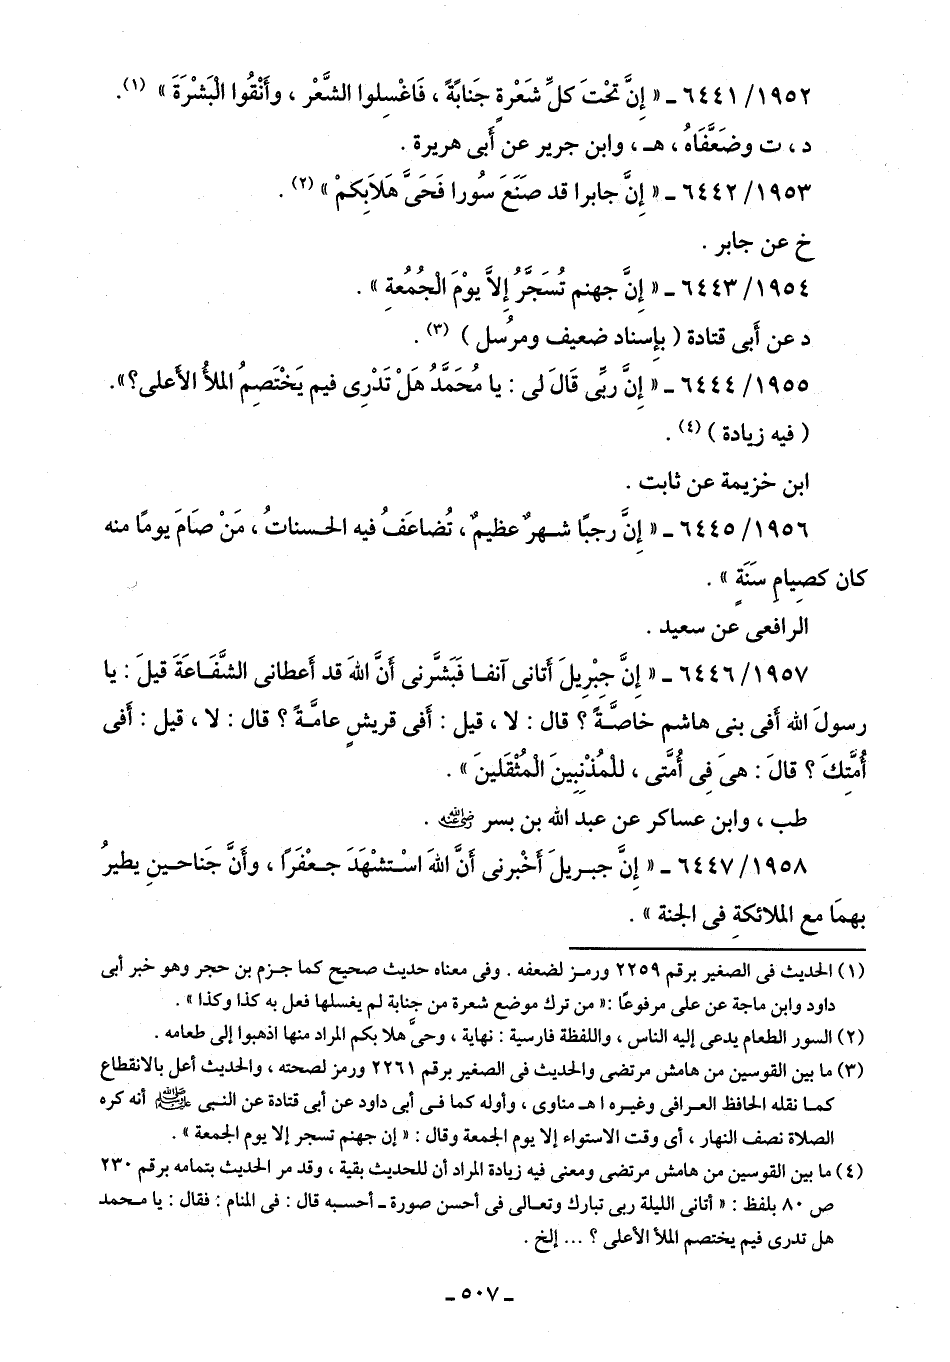 ٦٤٤١/١٩٥٢ ـ « إِنَّ تحْتَ كلِّ شَعْرةٍ جَنابًةً ، فَاغْسِلوا الشَّعْر ، وأَنْقُوا الْبَشْرَةَ » (١).
د ، ت وضَعَّفَاهُ ، هـ ، وابن جرير عن أَبى هريرة .
٦٤٤٢/١٩٥٣ ـ « إِنَّ جابرا قد صنَعَ سُورا فَحَىَّ هَلاَبكمْ » (٢) .
خ عن جابر .
٦٤٤٣/١٩٥٤ ـ « إِنَّ جهنم تُسَجَّرُ إِلاَّ يوْمَ الْجُمُعةِ » .
د عن أَبى قتادة ( بإسناد ضعيف ومرُسل ) (٣) .
٦٤٤٤/١٩٥٥ ـ « إِنَّ ربِّى قَالَ لى : يا مُحَمَّدُ هَلْ تَدْرِى فيم يَخْتَصمُ الملأُ الأَعلى؟».
( فيه زيادة ) (٤) .
ابن خزيمة عن ثابت .
٦٤٤٥/١٩٥٦ ـ « إِنَّ رجبًا شهرٌ عظيمٌ ، تُضاعَفُ فيه الحسناتُ ، مَنْ صَامَ يومًا منه
كان كصِيامِ سَنَةٍ » .
الرافعى عن سعيد .
٦٤٤٦/١٩٥٧ ـ « إِنَّ جِبْرِيلَ أَتانى آنفا فَبَشَّرنى أَنَّ اللهَ قد أَعطانى الشَّفَاعَةَ قيلَ : يا
رسولَ الله أَفى بنى هاشم خاصَّةً ؟ قال : لا ، قيل : أَفى قريشٍ عامَّةً ؟ قال : لا ، قيل : أَفى
أُمَّتِكَ ؟ قالَ : هىَ فِى أُمَّتى ، للْمُذْنِبِينَ الْمُثْقَلينَ » .
طب ، وابن عساكر عن عبد الله بن بسر رضي الله عنه .
٦٤٤٧/١٩٥٨ ـ « إِنَّ جبريلَ أَخْبرنى أَنَّ اللهَ اسْتشْهَدَ جعْفَرًا ، وأَنَّ جَناحينِ يطيرُ
بهمَا مع الملائكةِ فى الجنة » .
(١) الحديث فى الصغير برقم ٢٢٥٩ ورمز لضعفه . وفى معناه حديث صحيح كما جزم بن حجر وهو خبر أبى
داود وابن ماجة عن على مرفوعًا :« من ترك موضع شعرة من جنابة لم يغسلها فعل به كذا وكذا » .
(٢) السور الطعام يدعى إليه الناس ، واللفظة فارسية : نهاية ، وحىَّ هلا بكم المراد منها اذهبوا إلى طعامه .
(٣) ما بين القوسين من هامش مرتضى والحديث فى الصغير برقم ٢٢٦١ ورمز لصحته ، والحديث أعل بالانقطاع
كما نقله الحافظ العرافى وغيره ا هـ مناوى ، وأوله كما فى أبى داود عن أبى قتادة عن النبى ﷺ أنه كره
الصلاة نصف النهار ، أى وقت الاستواء إلا يوم الجمعة وقال : « إن جهنم تسجر إلا يوم الجمعة » .
(٤) ما بين القوسين من هامش مرتضى ومعنى فيه زيادة المراد أن للحديث بقية ، وقد مر الحديث بتمامه برقم ٢٣٠
ص ٨٠ بلفظ : « أتانى الليلة ربى تبارك وتعالى فى أحسن صورة ـ أحسبه قال : فى المنام : فقال : يا محمد
هل تدرى فيم يختصم الملأ الأعلى ؟ ... إلخ .
ـ ٥٠٧ ـ